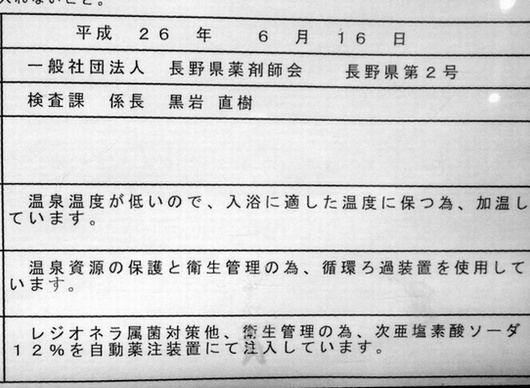 入れないこと。
平成 ２６ 年 ６ 月 １６ 日
一般社団法人 長野県薬剤師会 長野県第２号
検査課 係長 黒岩 直樹
温泉温度が低いので、入浴に適した温度に保つ為、加温し
ています。
温泉資源の保護と衛生管理の為、循環ろ過装置を使用して
います。
レジオネラ属菌対策他、衛生管理の為、次亜塩素酸ソーダ
１２％を自動薬注装置にて注入しています。